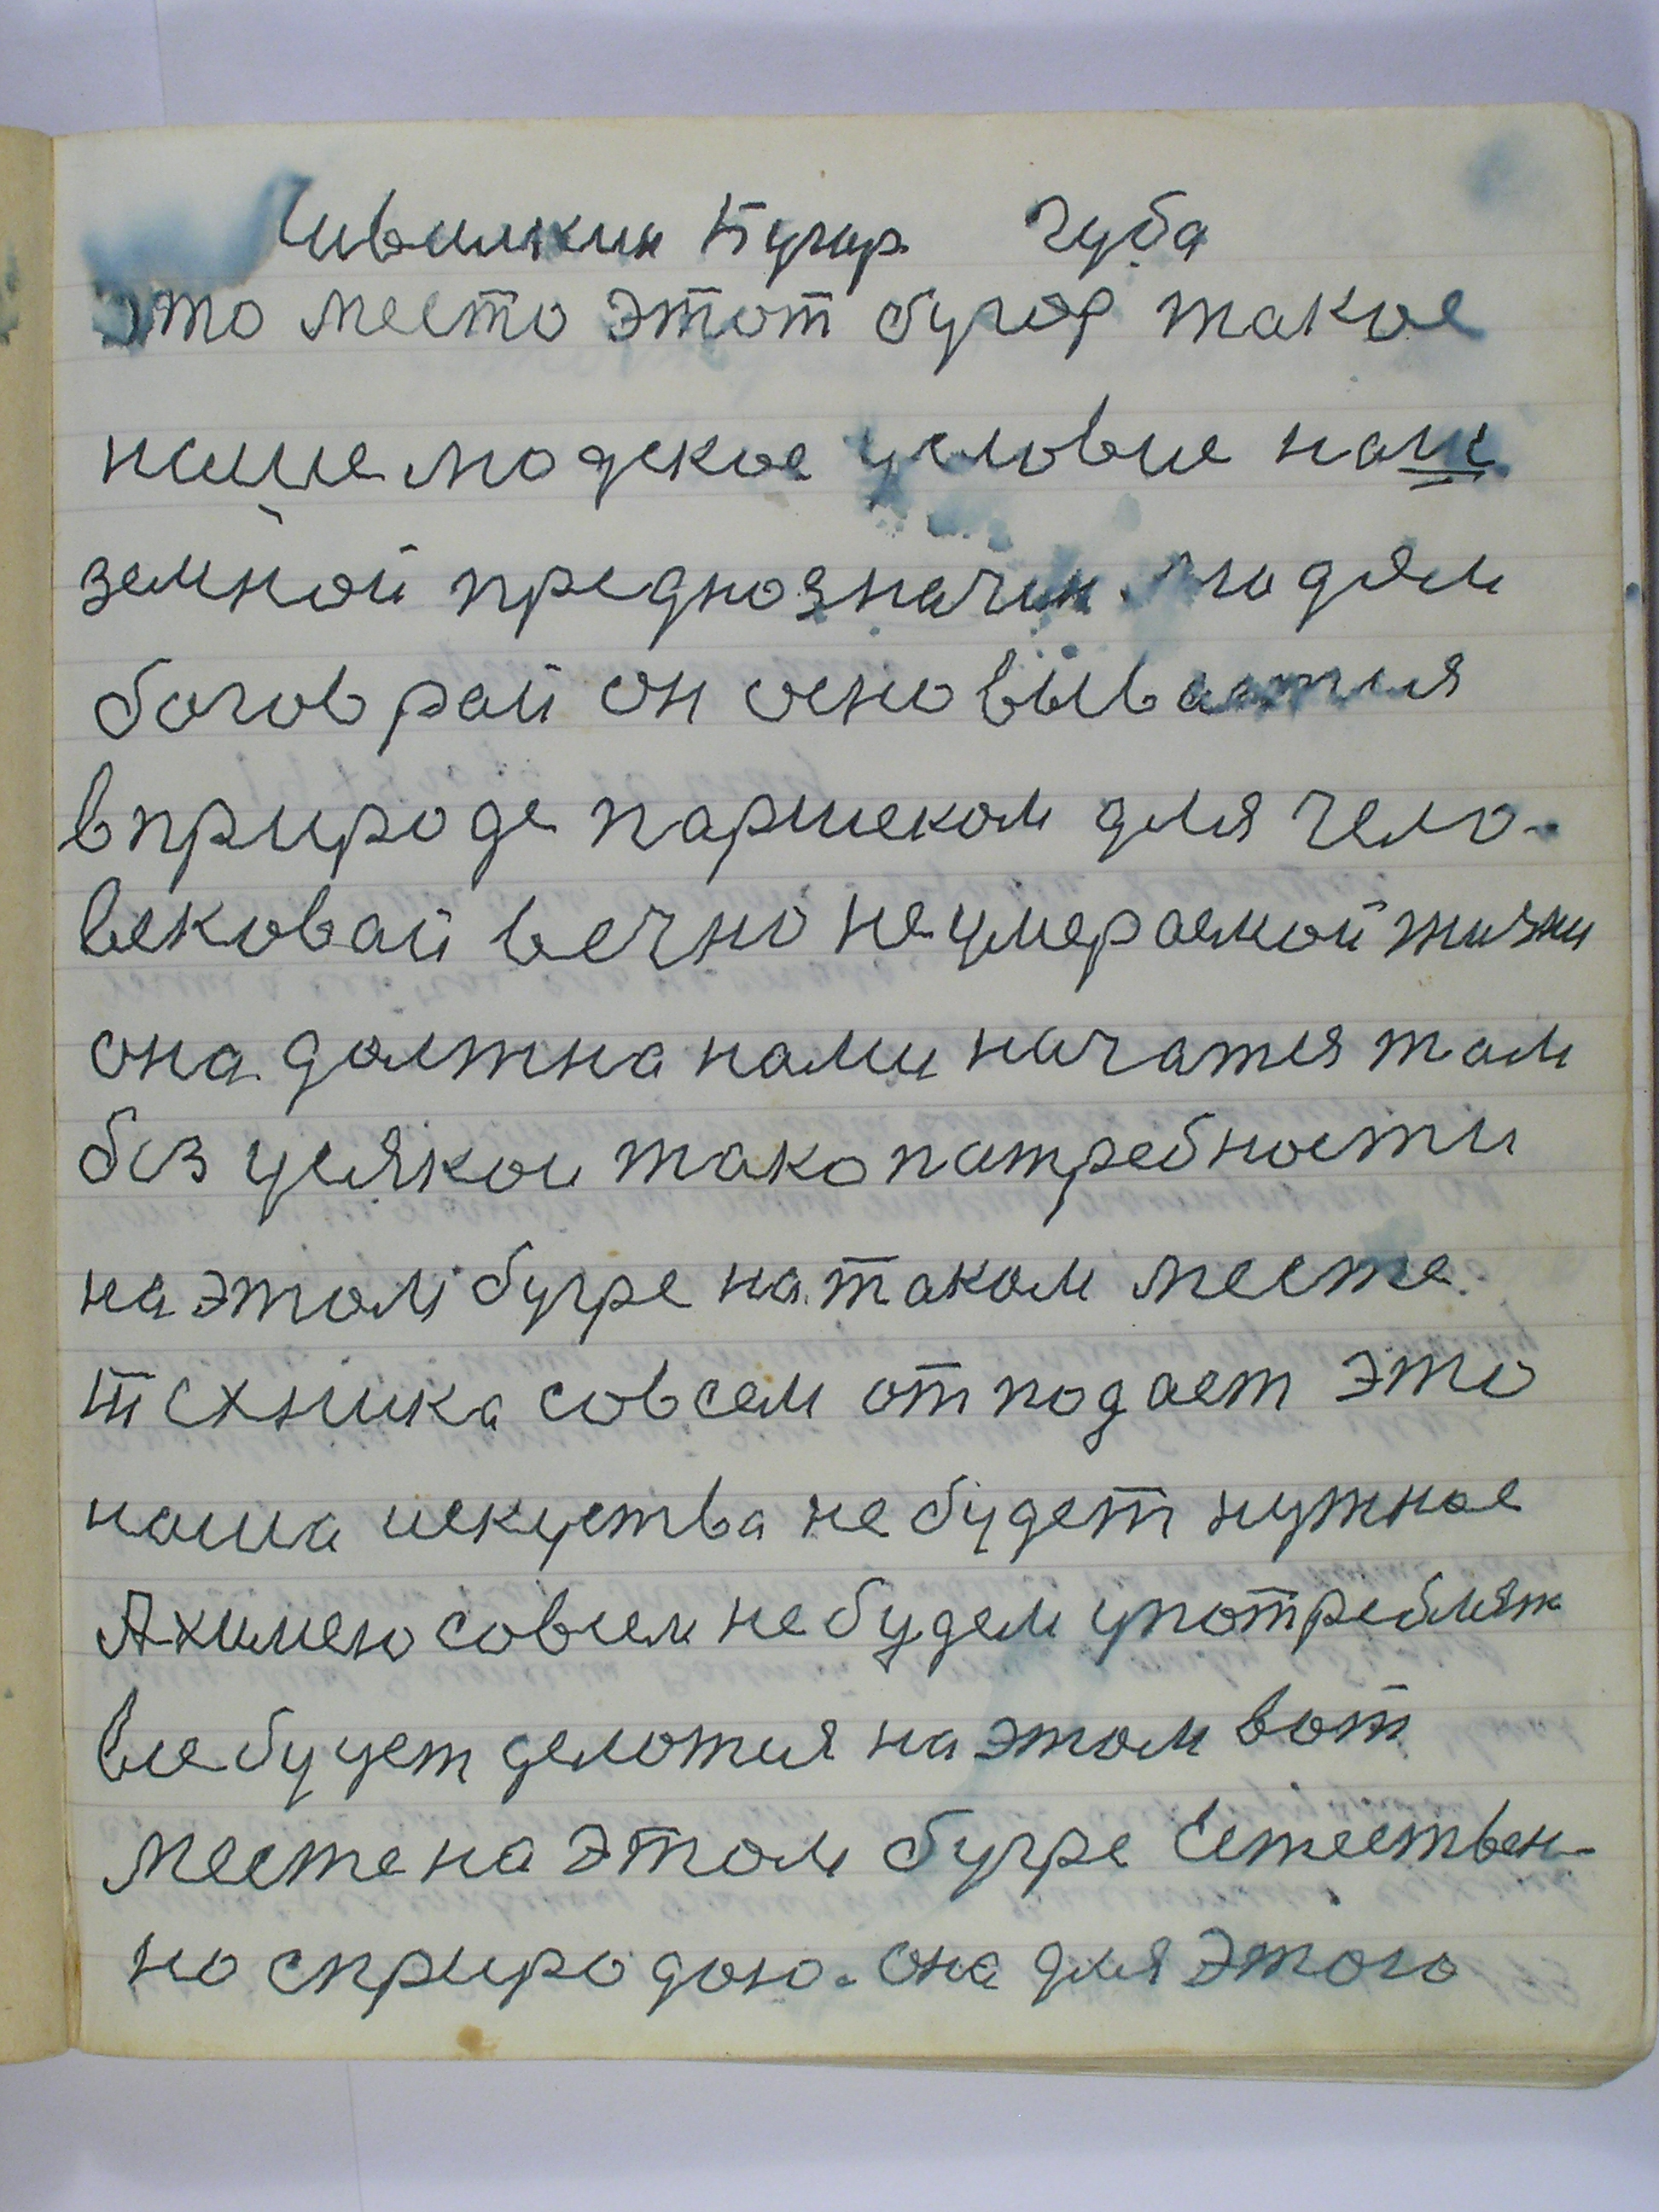 Чивилкин Бугир Чуба
это место этот бугор такое
наше людское условие наш
земной преднозначин людям
богов рай он основываится
в природе паршеком для чело-
вековай вечно неумераемой жизни
она должна нами начатся там
без усякои тако патребности
на этом бугре на таком месте
техника совсем отпадает это
наша искуства не будет нужное
А химею совсем не будем употреблят
все будет делотся на этом вот
месте на этом бугре Естествен-
но сприродою. она для этого